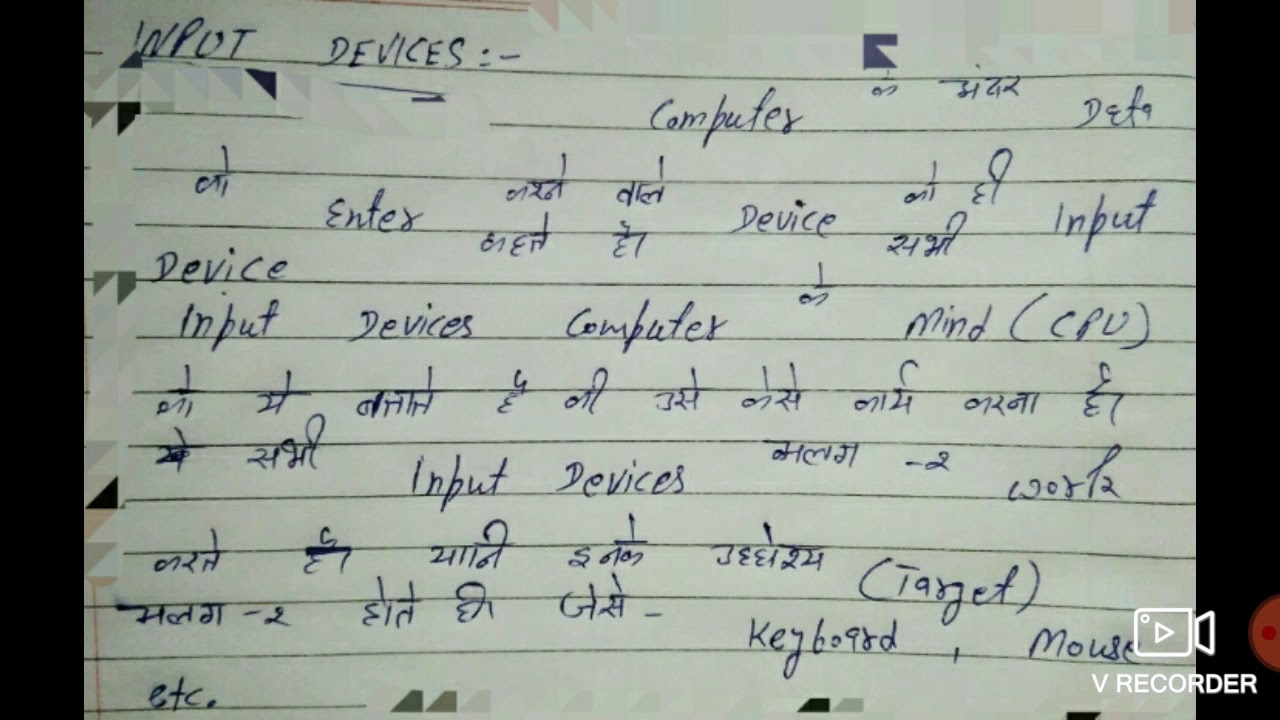 INPUT DEVICES :-
Computer के अंदर Data
को Enter करने वाले Device को ही Input
Device कहते है। सभी
Input Devices Computer के Mind (CPU)
को ये बताते है की उसे केसे कार्य करना है।
सभी Input Devices अलग -२ work
करते है। यानि इनके उद्देश्य (Target)
अलग -२ होते है। जेसे - Keyboard , Mouse
etc.
V RECORDER